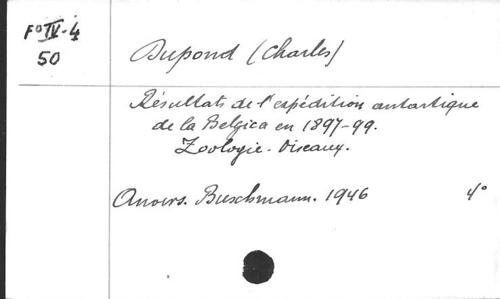 F° IV-4
50
Dupond (Charles)
Résultats de l'expédition antartique
de la Belgica en 1897-99.
Zoologie - Oiseaux.
Anvers. Buschmann. 1946 4°